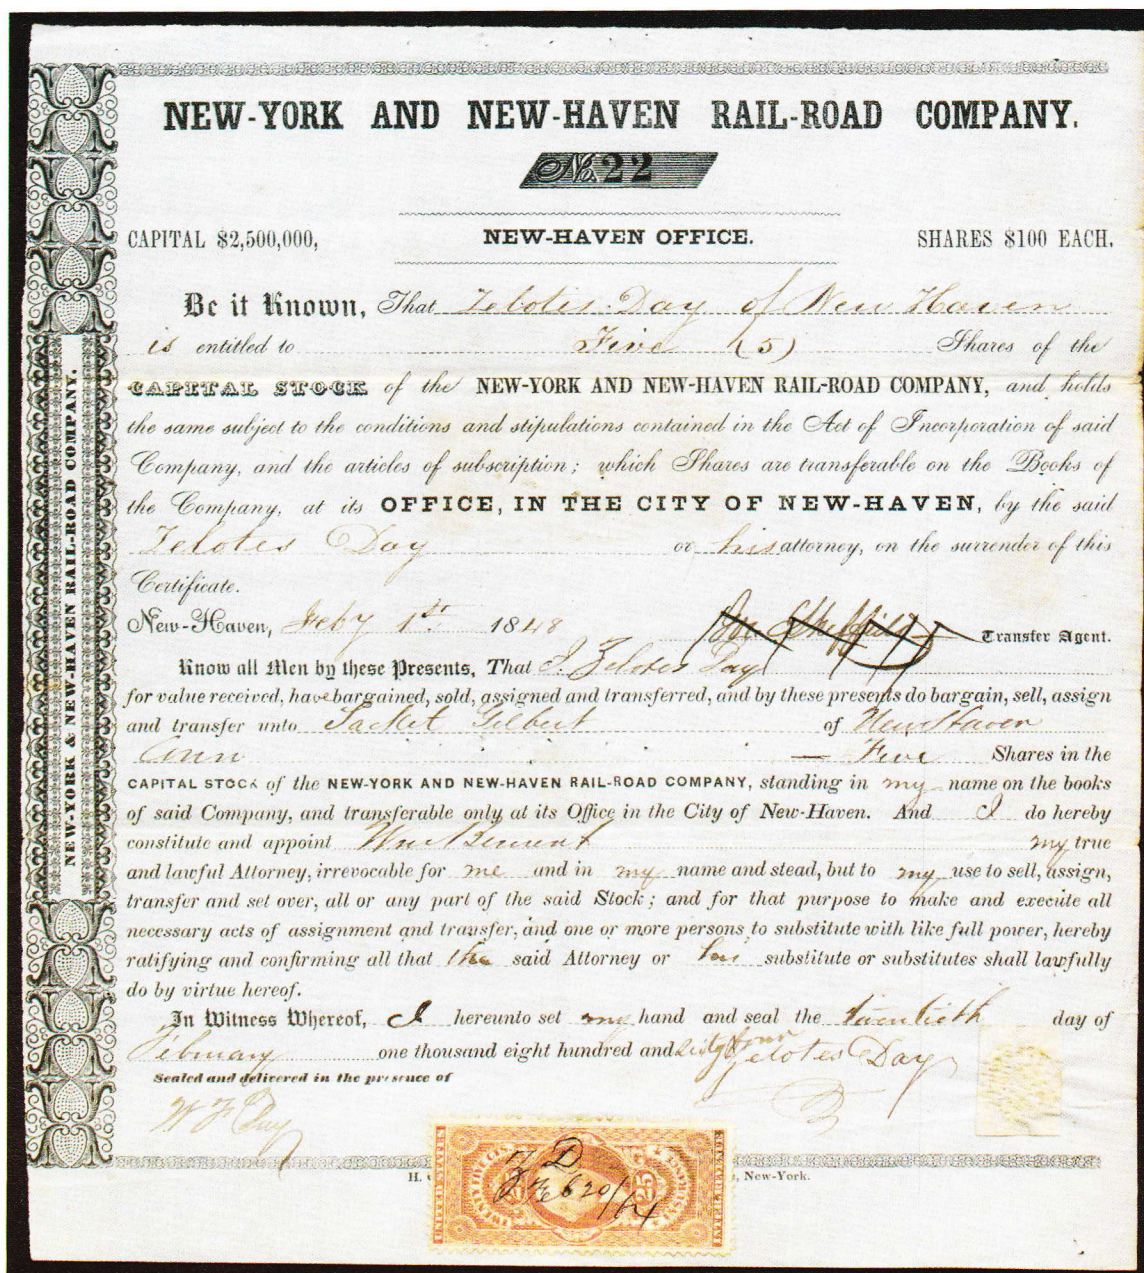 NEW-YORK AND NEW-HAVEN RAIL-ROAD COMPANY.
No. 22
CAPITAL $2,500,000, NEW-HAVEN OFFICE. SHARES $100 EACH.
Be it Known, That Zelotes Day of New Haven
is entitled to Five (5) Shares of the
CAPITAL STOCK of the NEW-YORK AND NEW-HAVEN RAIL-ROAD COMPANY, and holds
the same subject to the conditions and stipulations contained in the Act of Incorporation of said
Company, and the articles of subscription; which Shares are transferable on the Books of
the Company, at its OFFICE, IN THE CITY OF NEW-HAVEN, by the said
Zelotes Day or his attorney, on the surrender of this
Certificate.
New-Haven, Feby 1st 1848 Jos. Sheffield Transfer Agent.
Know all Men by these Presents, That I Zelotes Day
for value received, have bargained, sold, assigned and transferred, and by these presents do bargain, sell, assign
and transfer unto Sacket Gilbert of New Haven
Conn — Five Shares in the
CAPITAL STOCK of the NEW-YORK AND NEW-HAVEN RAIL-ROAD COMPANY, standing in my name on the books
of said Company, and transferable only at its Office in the City of New-Haven. And I do hereby
constitute and appoint Wm Bement my true
and lawful Attorney, irrevocable for me and in my name and stead, but to my use to sell, assign,
transfer and set over, all or any part of the said Stock; and for that purpose to make and execute all
necessary acts of assignment and transfer, and one or more persons to substitute with like full power, hereby
ratifying and confirming all that the said Attorney or his substitute or substitutes shall lawfully
do by virtue hereof.
In Witness Whereof, I hereunto set my hand and seal the twentieth day of
February one thousand eight hundred and sixty four Zelotes Day
Sealed and delivered in the presence of
W F Day
H. , New-York.
NEW-YORK & NEW-HAVEN RAIL-ROAD COMPANY.
UNITED STATES
TWENTY FIVE CTS
25
Z D
Feb 20/64